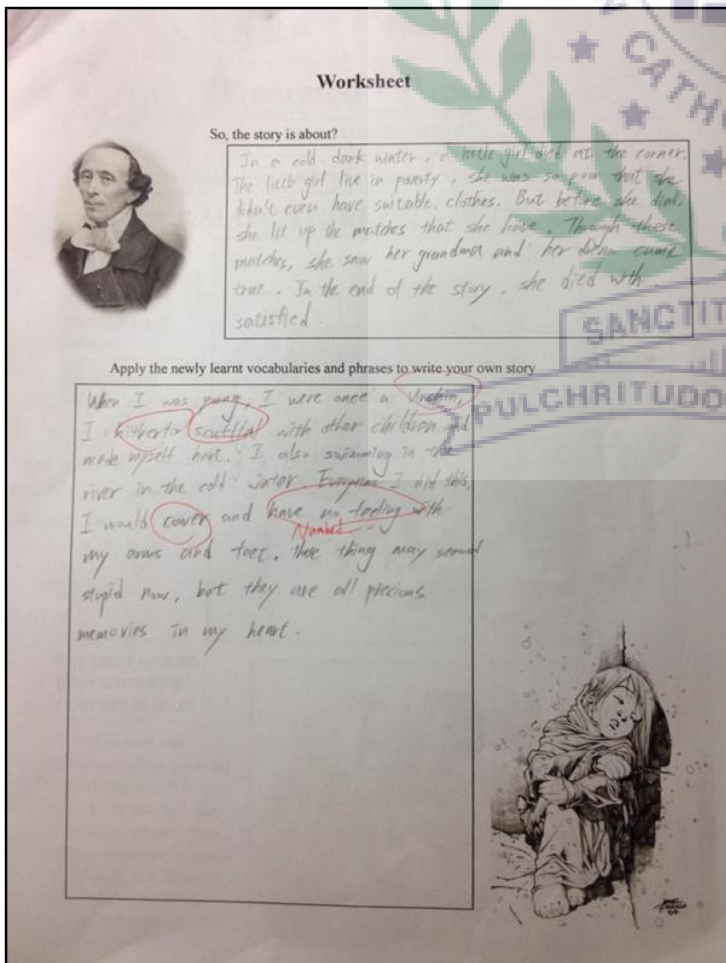 Worksheet
So, the story is about?
In a cold, dark winter, a little girl died at the corner.
The little girl live in poverty, she was so poor that she
didn't even have suitable clothes. But before she died,
she lit up the matches that she have. Through these
matches, she saw her grandma and her dream came
true. In the end of the story, she died with
satisfied.
Apply the newly learnt vocabularies and phrases to write your own story
When I was young, I were once a Urchin,
I hitherto with other children and
made myself hurt. I also swimming in the
river in the cold. I did this,
I would cower and have no feeling with
Numbed
my arms and feet. thing may seemed
stupid now, but they are all precious
memories in my heart.
CATH
SANCTIT
PULCHRITUDO